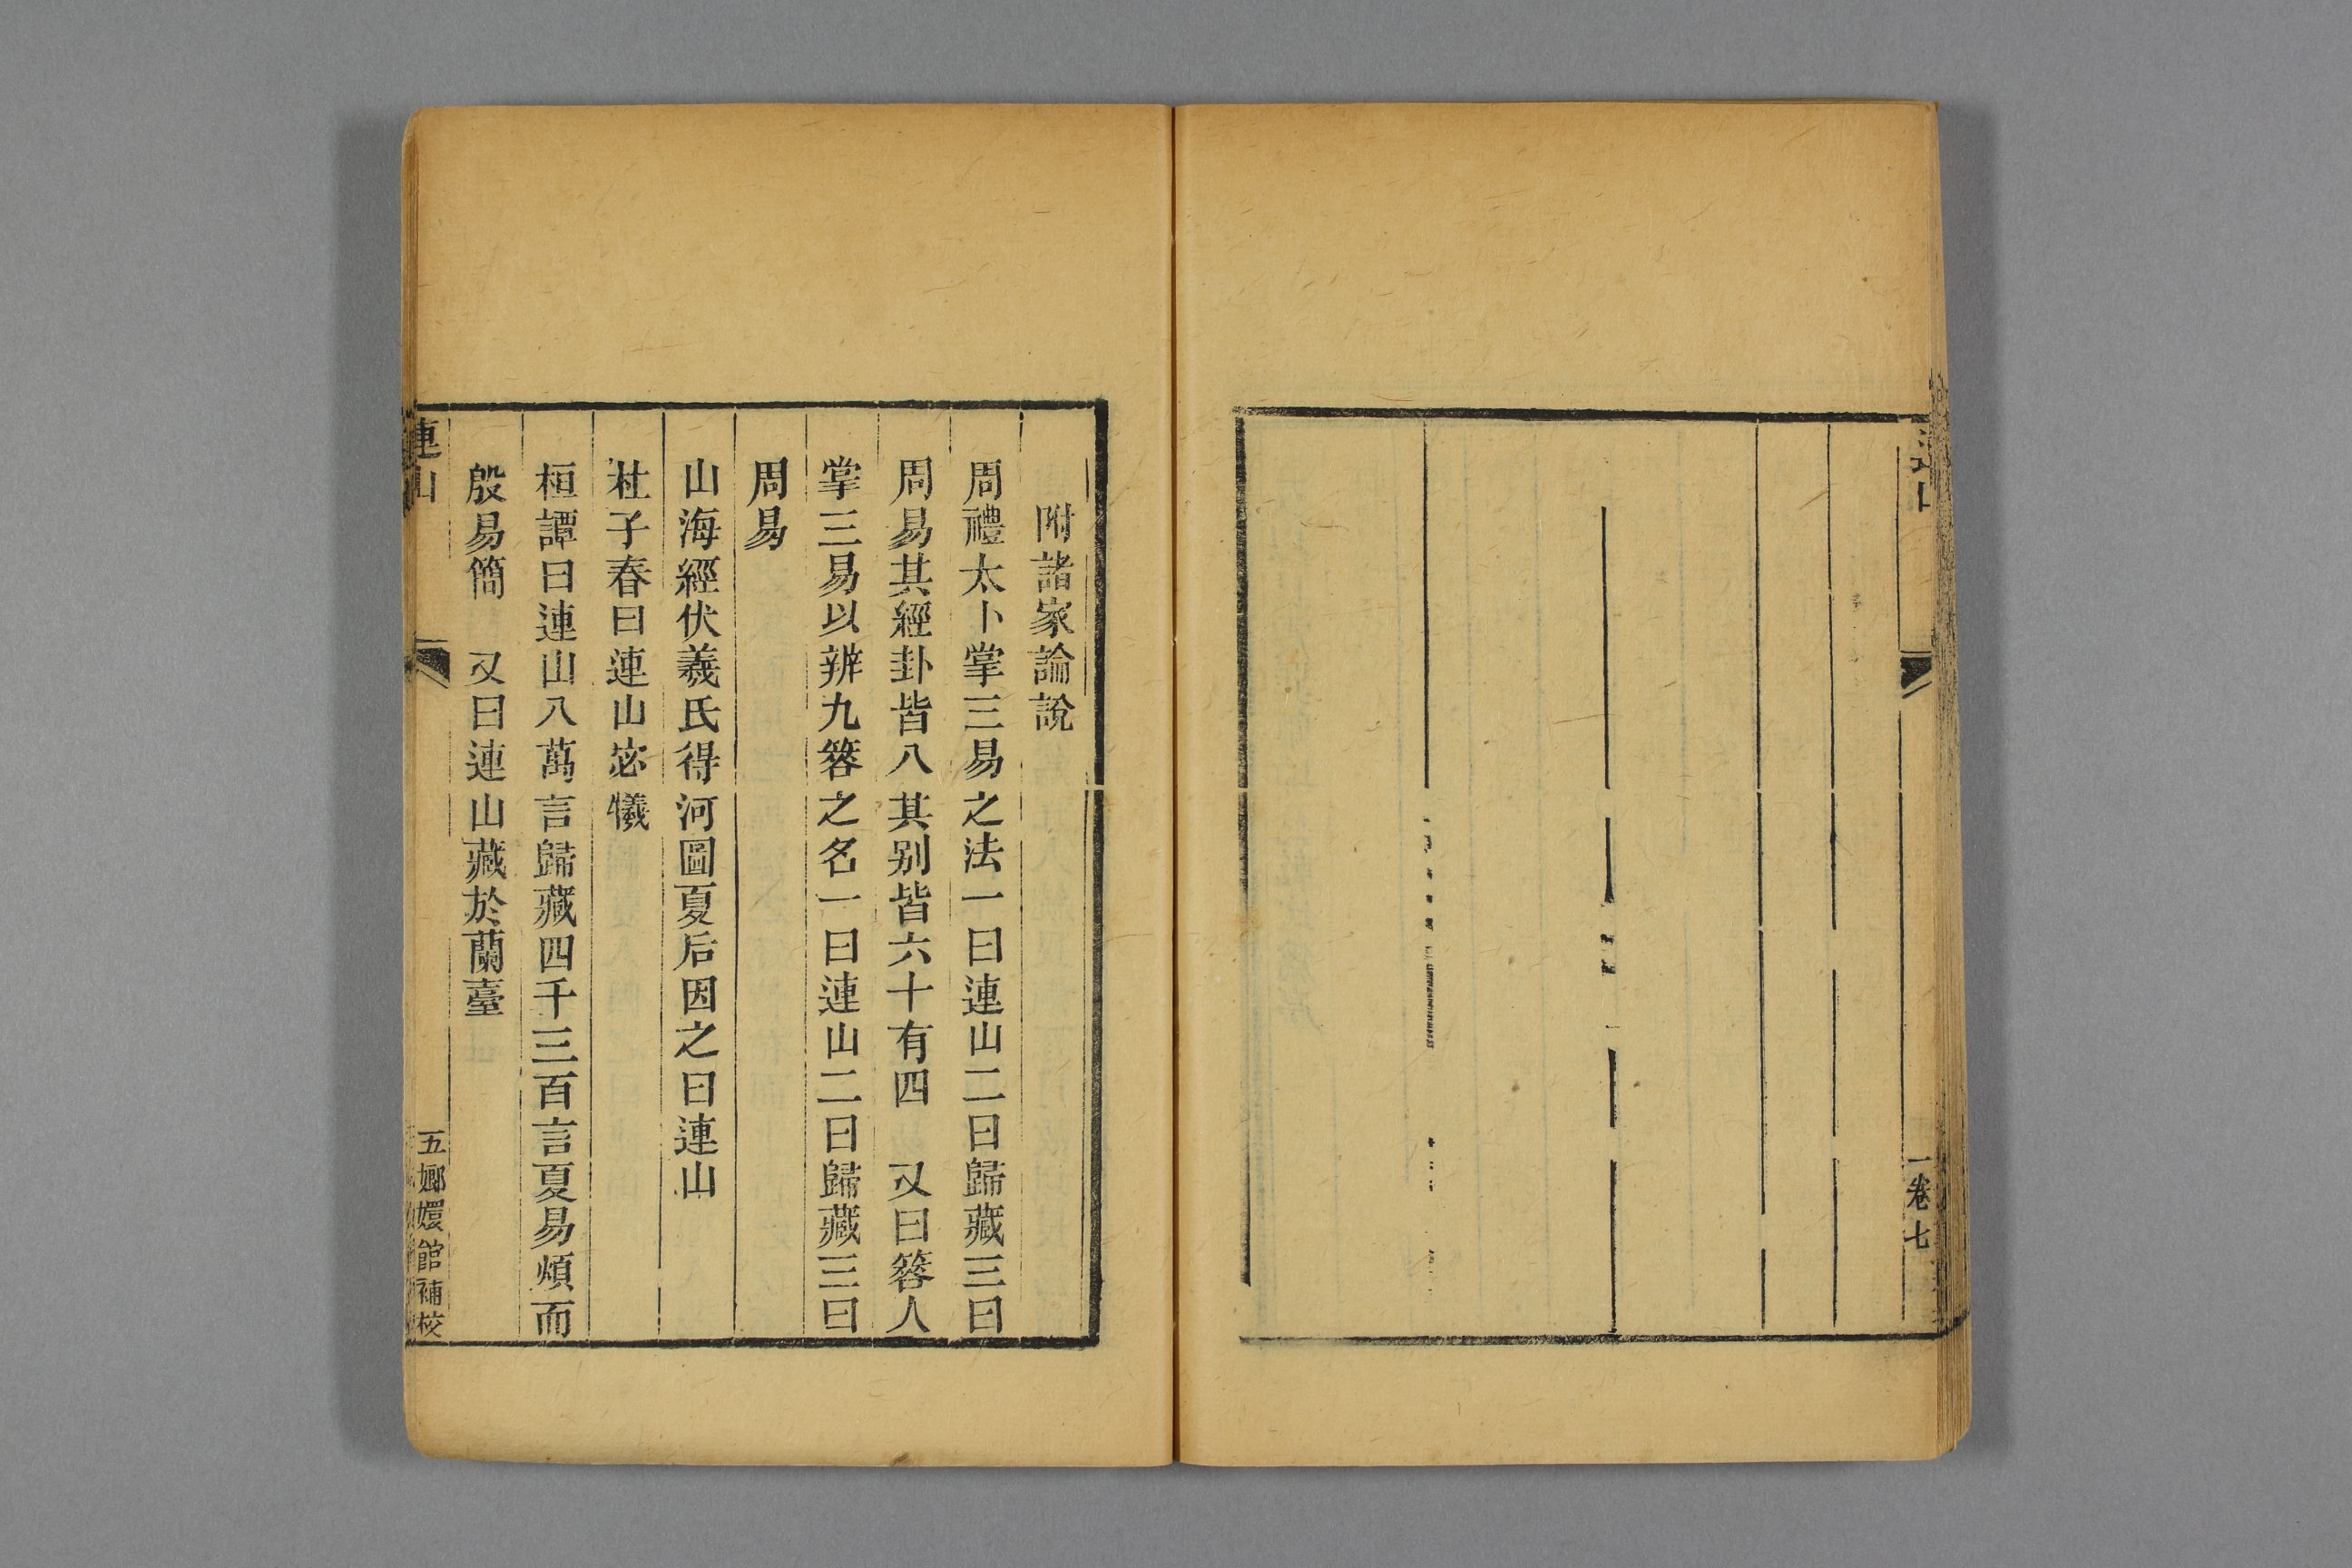 連山
一卷七
附諸家論說
周禮太卜掌三易之法一曰連山二曰歸藏三曰
周易其經卦皆八其别皆六十有四　又曰簭人
掌三易以辨九簭之名一曰連山二曰歸藏三曰
周易
山海經伏羲氏得河圖夏后因之曰連山
杜子春曰連山宓犧
桓譚曰連山八萬言歸藏四千三百言夏易煩而
殷易簡　又曰連山藏於蘭臺
連山
五嫏嬛館補校